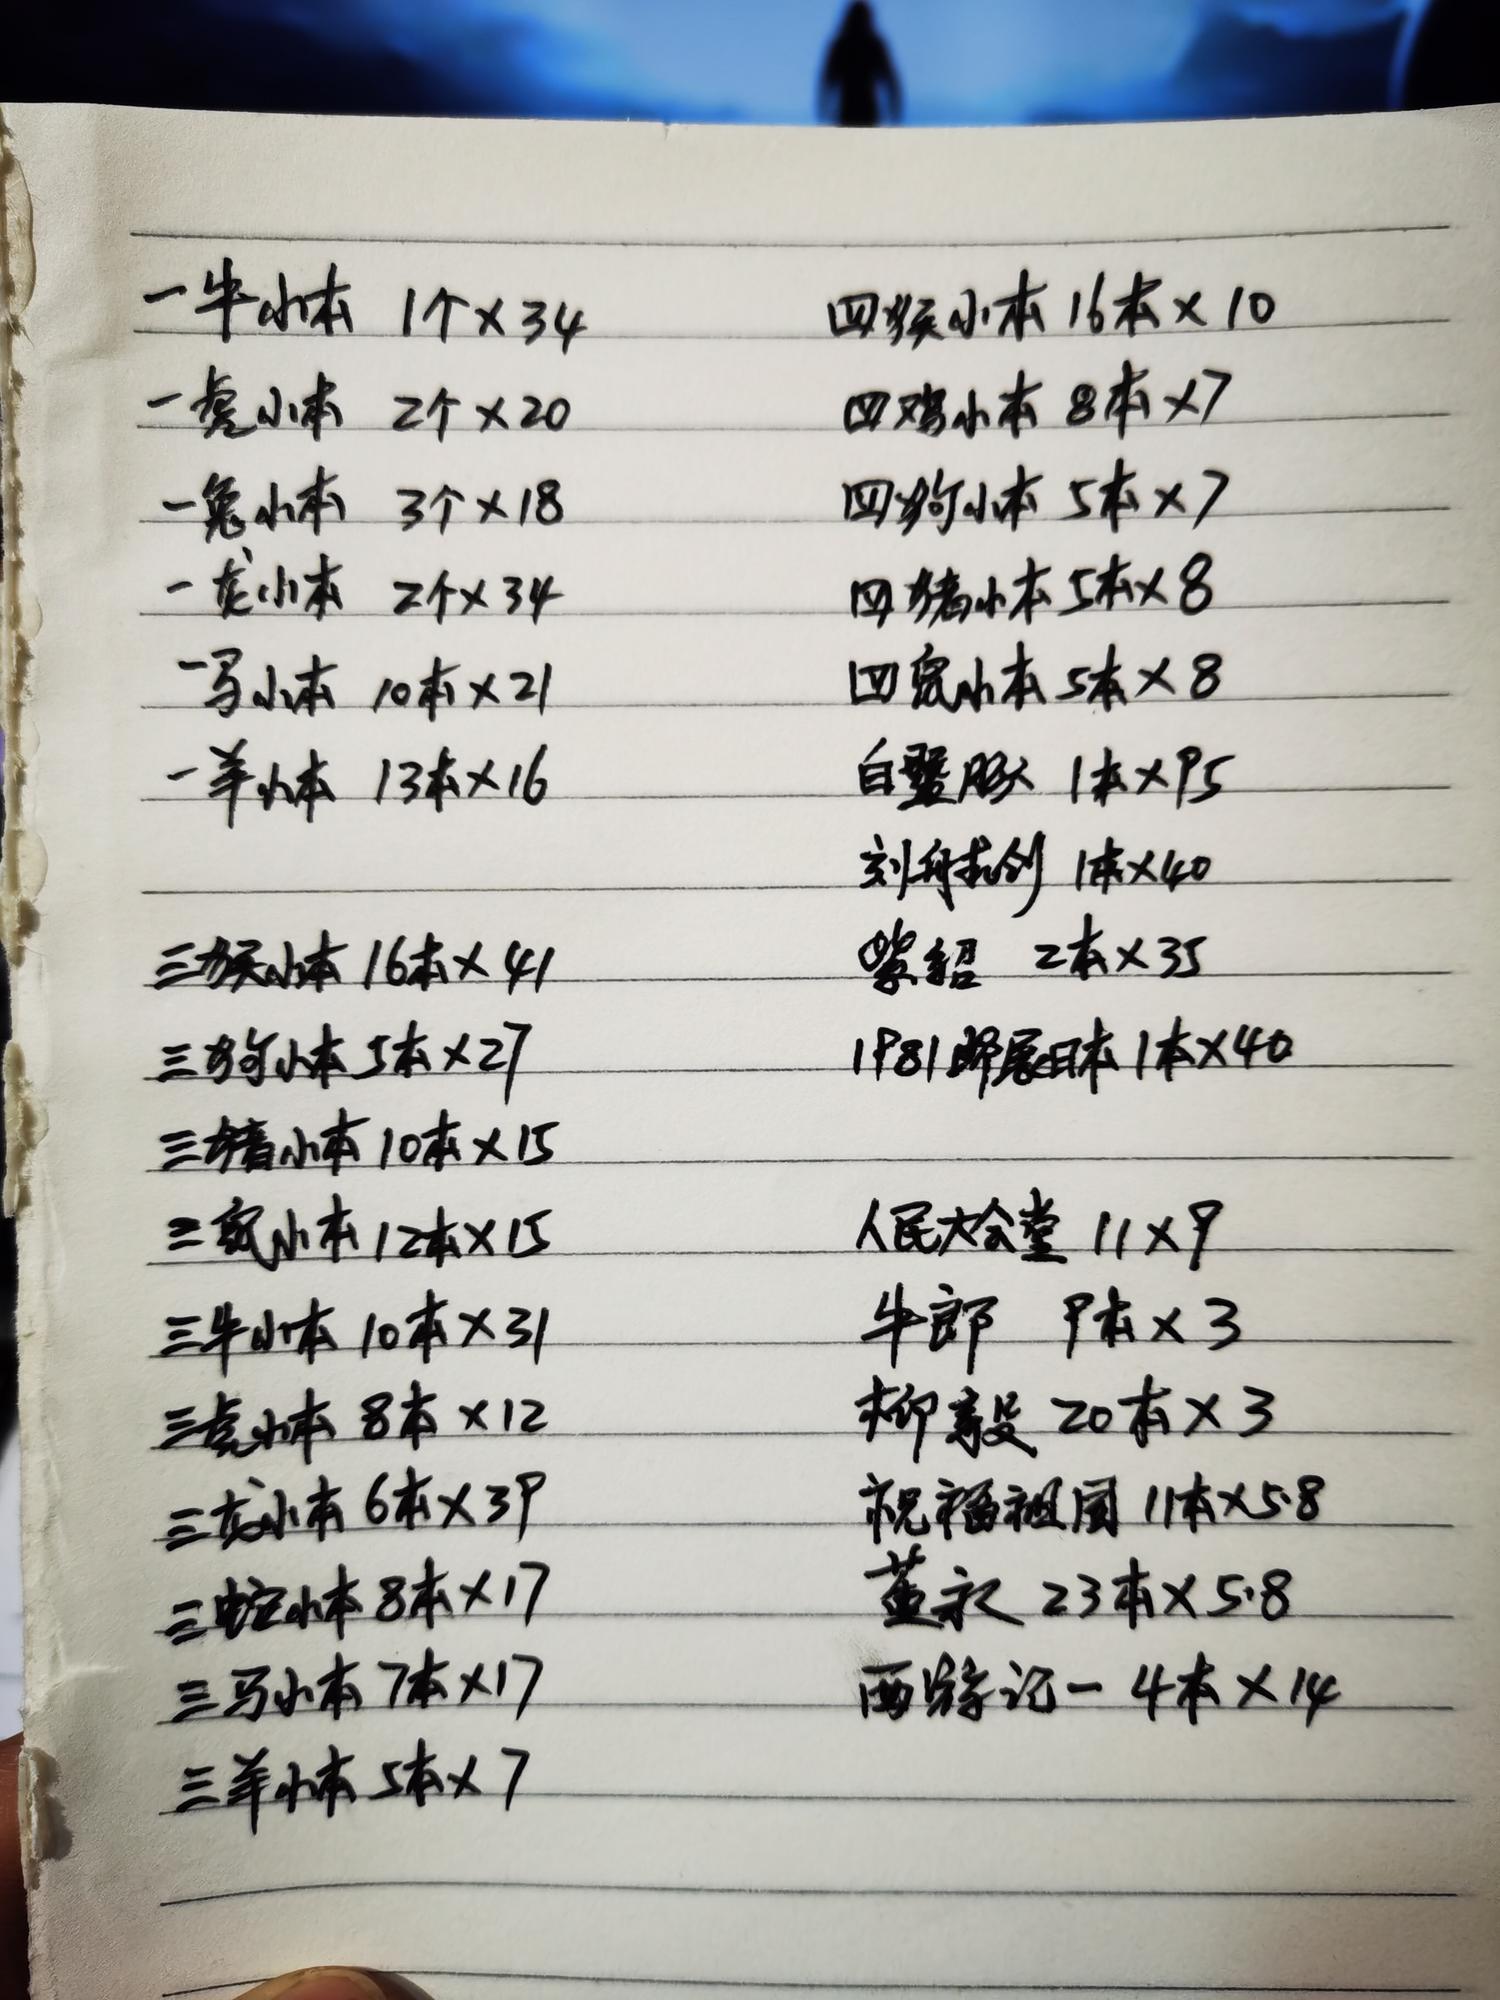 一牛小本 1个×34
一虎小本 2个×20
一兔小本 3个×18
一龙小本 2个×34
一马小本 10本×21
一羊小本 13本×16
三猴小本 16本×41
三狗小本 5本×27
三猪小本 10本×15
三鼠小本 12本×15
三牛小本 10本×31
三虎小本 8本×12
三龙小本 6本×39
三蛇小本 8本×17
三马小本 7本×17
三羊小本 5本×7
四猴小本 16本×10
四鸡小本 8本×7
四狗小本 5本×7
四猪小本 5本×8
四鼠小本 5本×8
白暨豚 1本×95
刻舟求剑 1本×40
紫貂 2本×35
1981邮展日本 1本×40
人民大会堂 11×9
牛郎 9本×3
柳毅 20本×3
祝福祖国 11本×5.8
董永 23本×5.8
西游记一 4本×14